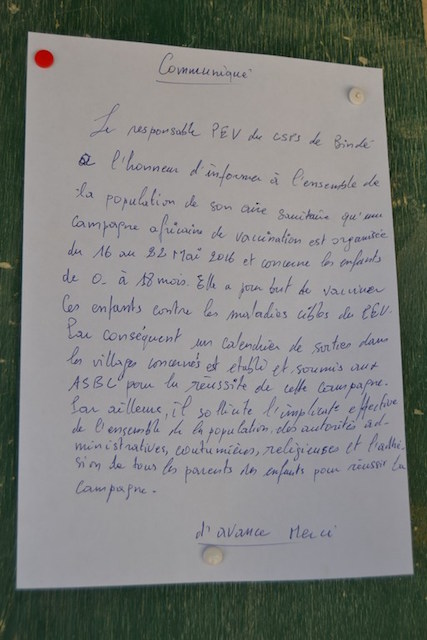 Communiqué
Le responsable PEV du CSPS de Bindé
a l'honneur d'informer à l'ensemble de
la population de son aire sanitaire qu'une
campagne africaine de vaccination est organisée
du 16 au 22 Mai 2016 et concerne les enfants
de 0 à 18 mois. Elle a pour but de vacciner
ces enfants contre les maladies cibles du PEV.
Par conséquent un calendrier de sorties dans
les villages concernés est établi et soumis aux
ASBC pour la réussite de cette campagne.
Par ailleurs, il sollicite l'implicate effective
de l'ensemble de la population, des autorités ad-
ministratives, coutumières, religieuses et l'adhé-
sion de tous les parents des enfants pour réussir la
campagne.
d'avance Merci